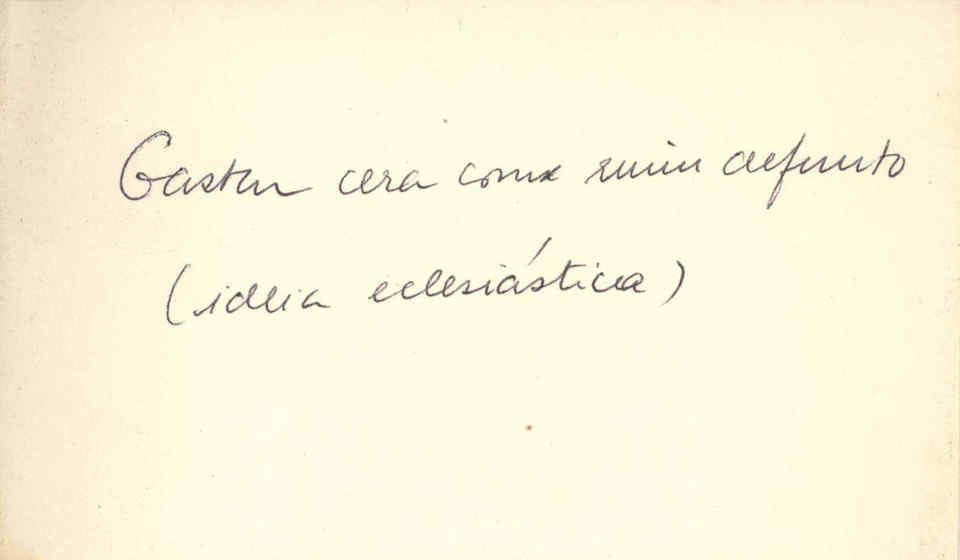 Gastou cera com ruim defunto
(ideia eclesiástica)